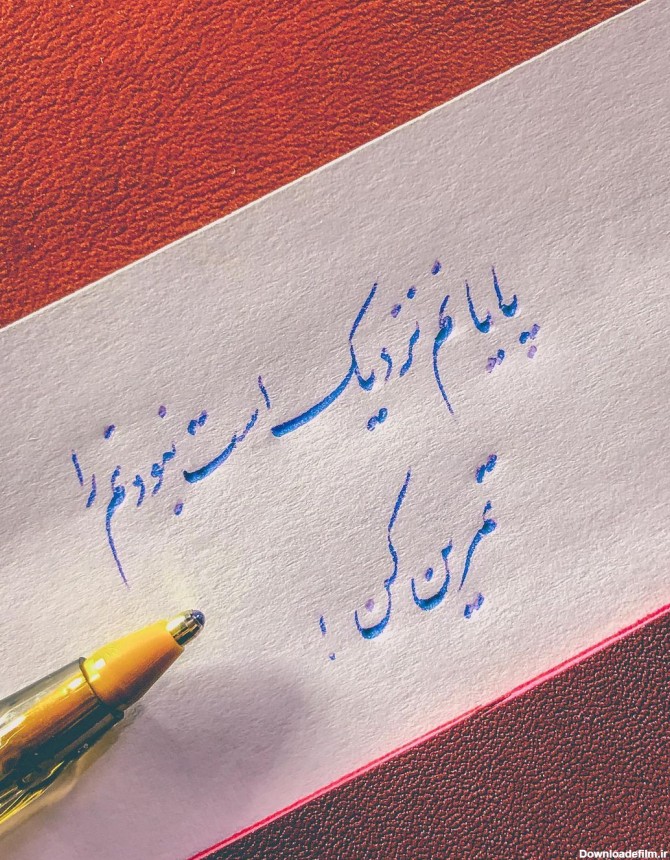 پایانم نزدیک است نبودنم را
تمرین کن !
Downloadefilm.ir